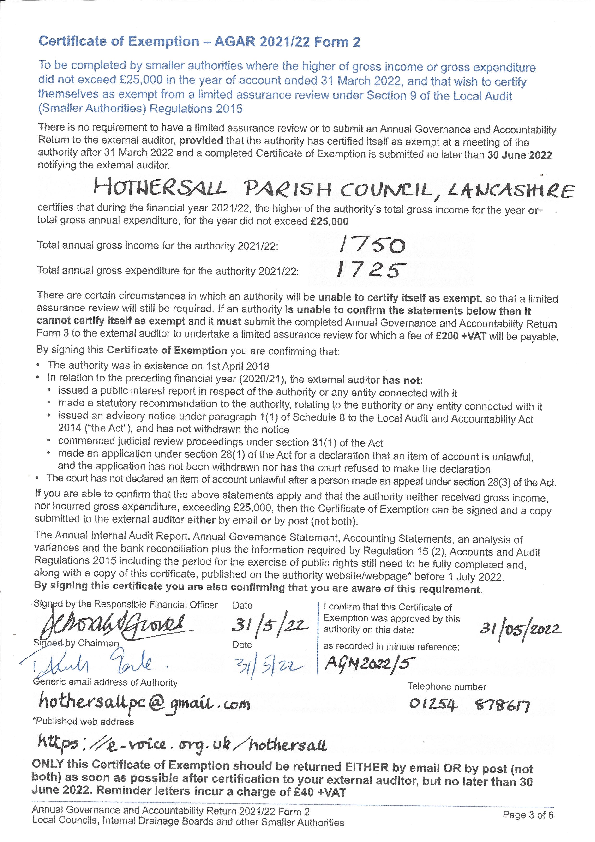 Certificate of Exemption – AGAR 2021/22 Form 2
To be completed by smaller authorities where the higher of gross income or gross expenditure
did not exceed £25,000 in the year of account ended 31 March 2022, and that wish to certify
themselves as exempt from a limited assurance review under Section 9 of the Local Audit
(Smaller Authorities) Regulations 2015
There is no requirement to have a limited assurance review or to submit an Annual Governance and Accountability
Return to the external auditor, provided that the authority has certified itself as exempt at a meeting of the
authority after 31 March 2022 and a completed Certificate of Exemption is submitted no later than 30 June 2022
notifying the external auditor.
HOTHERSALL PARISH COUNCIL, LANCASHIRE
certifies that during the financial year 2021/22, the higher of the authority's total gross income for the year or
total gross annual expenditure, for the year did not exceed £25,000
Total annual gross income for the authority 2021/22: 1750
Total annual gross expenditure for the authority 2021/22: 1725
There are certain circumstances in which an authority will be unable to certify itself as exempt, so that a limited
assurance review will still be required. If an authority is unable to confirm the statements below then it
cannot certify itself as exempt and it must submit the completed Annual Governance and Accountability Return
Form 3 to the external auditor to undertake a limited assurance review for which a fee of £200 +VAT will be payable.
By signing this Certificate of Exemption you are confirming that:
• The authority was in existence on 1st April 2018
• In relation to the preceding financial year (2020/21), the external auditor has not:
• issued a public interest report in respect of the authority or any entity connected with it
• made a statutory recommendation to the authority, relating to the authority or any entity connected with it
• issued an advisory notice under paragraph 1(1) of Schedule 8 to the Local Audit and Accountability Act
2014 ("the Act"), and has not withdrawn the notice
• commenced judicial review proceedings under section 31(1) of the Act
• made an application under section 28(1) of the Act for a declaration that an item of account is unlawful,
and the application has not been withdrawn nor has the court refused to make the declaration
• The court has not declared an item of account unlawful after a person made an appeal under section 28(3) of the Act.
If you are able to confirm that the above statements apply and that the authority neither received gross income,
nor incurred gross expenditure, exceeding £25,000, then the Certificate of Exemption can be signed and a copy
submitted to the external auditor either by email or by post (not both).
The Annual Internal Audit Report, Annual Governance Statement, Accounting Statements, an analysis of
variances and the bank reconciliation plus the information required by Regulation 15 (2), Accounts and Audit
Regulations 2015 including the period for the exercise of public rights still need to be fully completed and,
along with a copy of this certificate, published on the authority website/webpage* before 1 July 2022.
By signing this certificate you are also confirming that you are aware of this requirement.
Signed by the Responsible Financial Officer Date
31/5/22
I confirm that this Certificate of
Exemption was approved by this
authority on this date: 31/05/2022
Signed by Chairman Date
31/5/22
as recorded in minute reference:
AGM2022/5
Generic email address of Authority Telephone number
hothersallpc@gmail.com 01254 878617
*Published web address
https://e-voice.org.uk/hothersall
ONLY this Certificate of Exemption should be returned EITHER by email OR by post (not
both) as soon as possible after certification to your external auditor, but no later than 30
June 2022. Reminder letters incur a charge of £40 +VAT
Annual Governance and Accountability Return 2021/22 Form 2 Page 3 of 6
Local Councils, Internal Drainage Boards and other Smaller Authorities